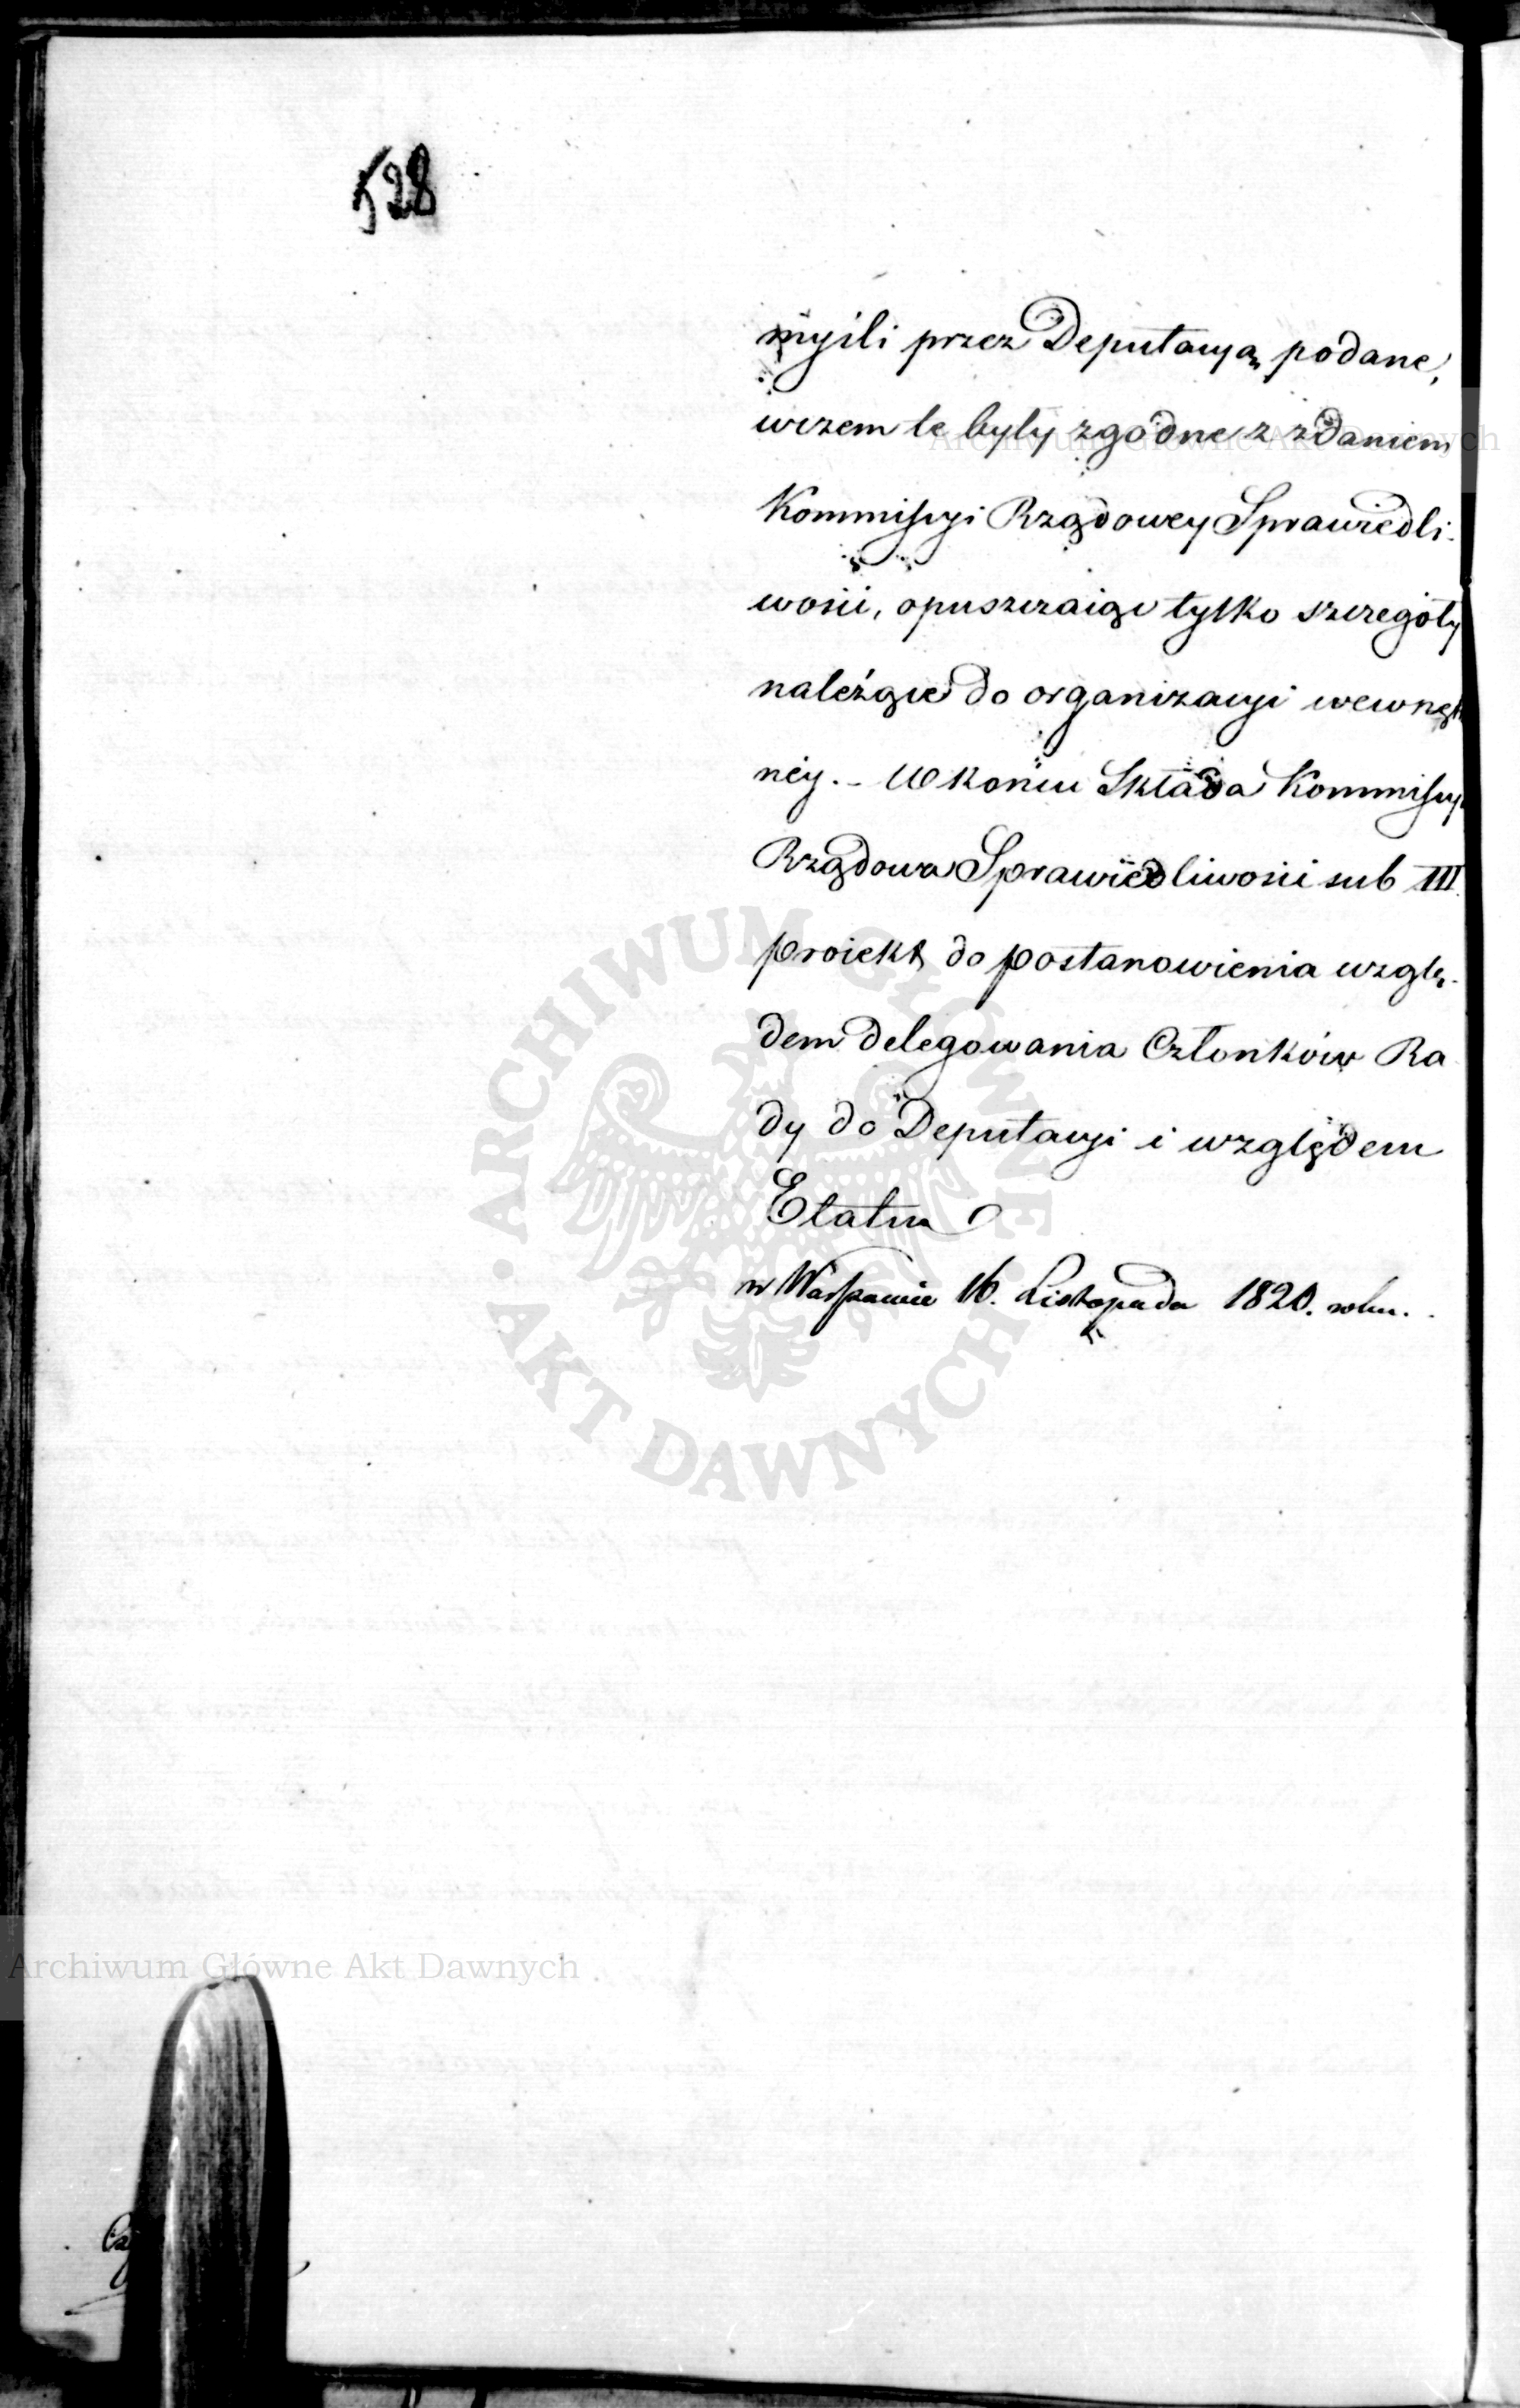 528
myśli przez Deputacyą podane,
wczem te były zgodne z zdaniem
Kommissyi Rządowey Sprawiedli-
wości, opuszczaiąc tylko szczegóły
należące do organizacyi wewnętr
ney. – W końcu Składa Kommissya
Rządowa Sprawiedliwości sub III.
proiekt do postanowienia wzglę-
dem delegowania Członków Ra
dy do Deputacyi i względem
Etatu
w Warszawie 16. Listopada 1820. roku.
ARCHIWUM GŁÓWNE AKT DAWNYCH
Archiwum Główne Akt Dawnych
Archiwum Główne Akt Dawnych